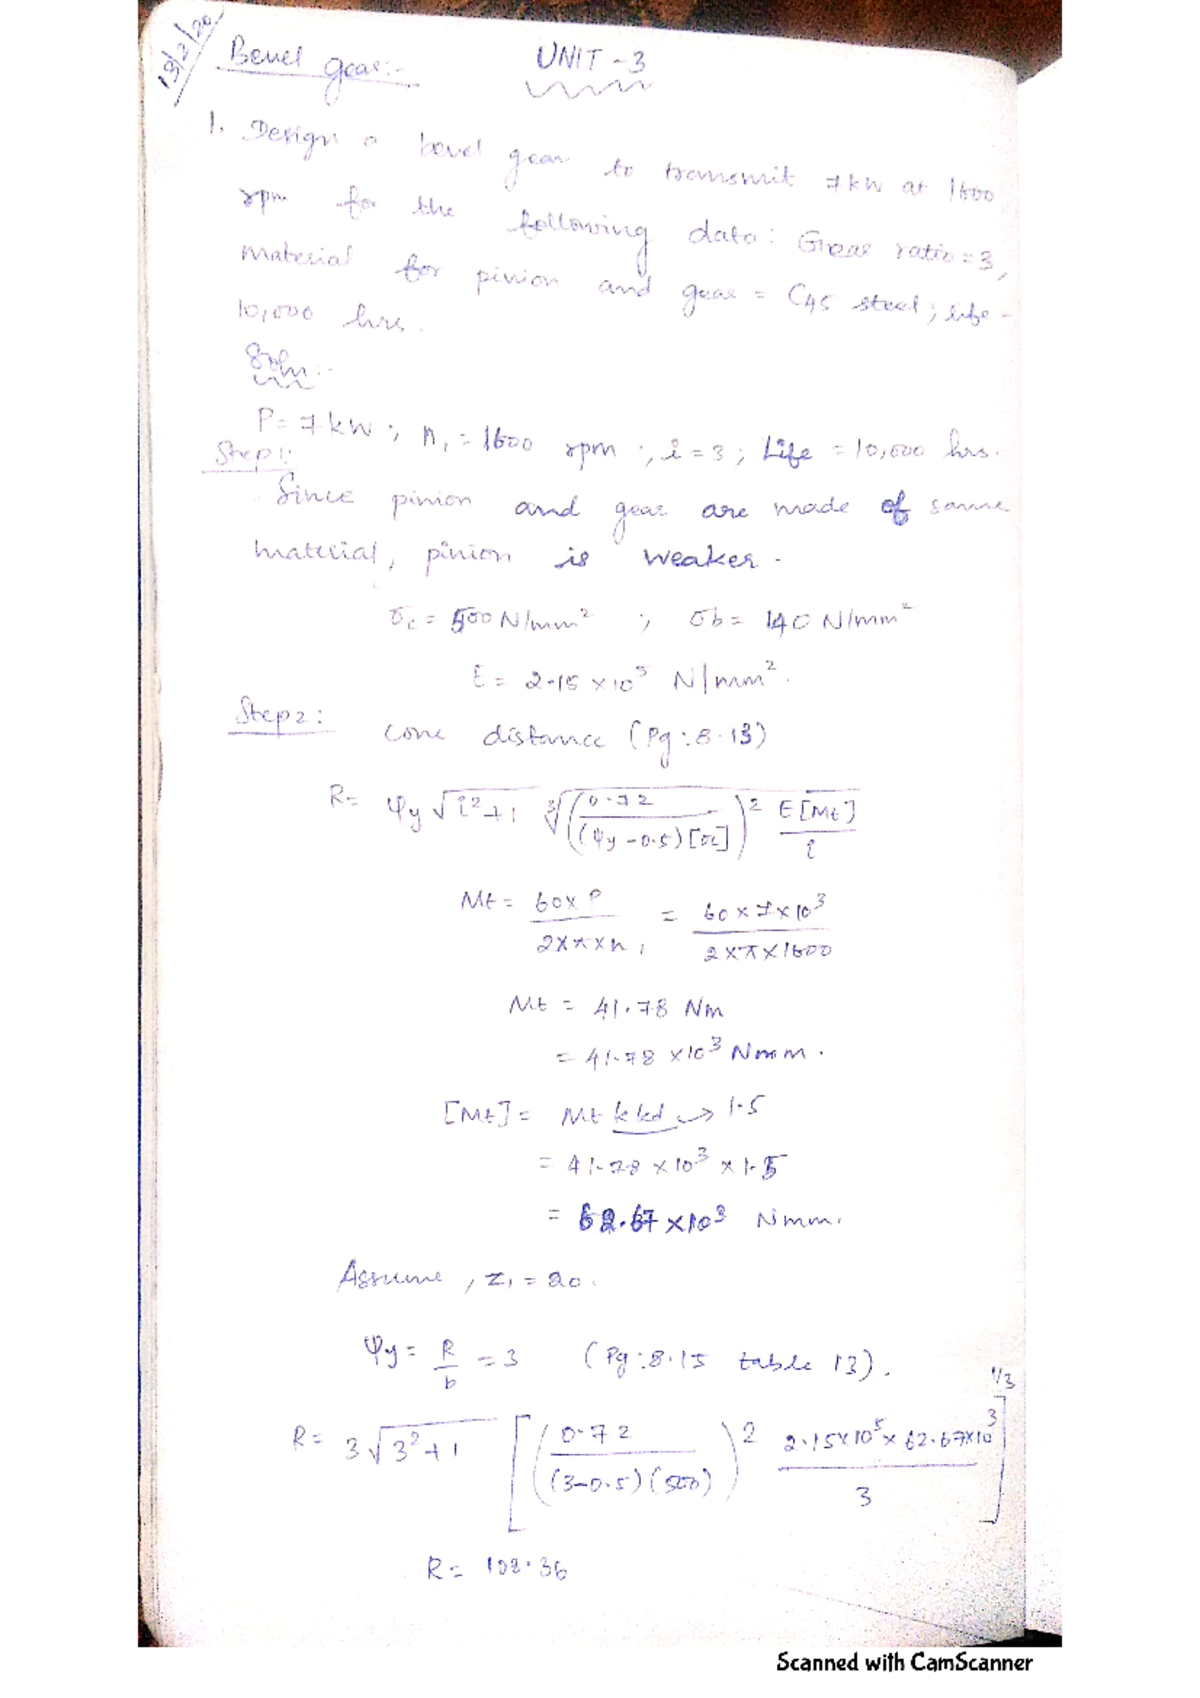 19/2/20
Bevel gear:-
UNIT - 3
1. Design a bevel gear to transmit 7kW at 1600
rpm for the following data: Gear ratio = 3,
material for pinion and gear = C45 steel; life -
10,000 hrs.
Soln:-
P = 7kW ; n₁ = 1600 rpm ; i = 3 ; Life = 10,000 hrs.
Step 1:
Since pinion and gear are made of same
material, pinion is weaker.
σc = 500 N/mm² ; σb = 140 N/mm²
E = 2.15 × 10⁵ N/mm².
Step 2:
cone distance (Pg : 8.13)
R = ψy √(i²+1) ∛((0.72/((ψy - 0.5)[σc]))² E[Mt]/i)
Mt = 60 × P / 2×π×n₁ = 60 × 7 × 10³ / 2×π×1600
Mt = 41.78 Nm
= 41.78 × 10³ Nmm.
[Mt] = Mt k kd → 1.5
= 41.78 × 10³ × 1.5
= 62.67 × 10³ Nmm.
Assume, z₁ = 20.
ψy = R/b = 3 (Pg : 8.15 table 13).
R = 3√(3²+1) [(0.72/((3-0.5)(500)))² 2.15×10⁵ × 62.67×10³ / 3]^1/3
R = 102.36
Scanned with CamScanner